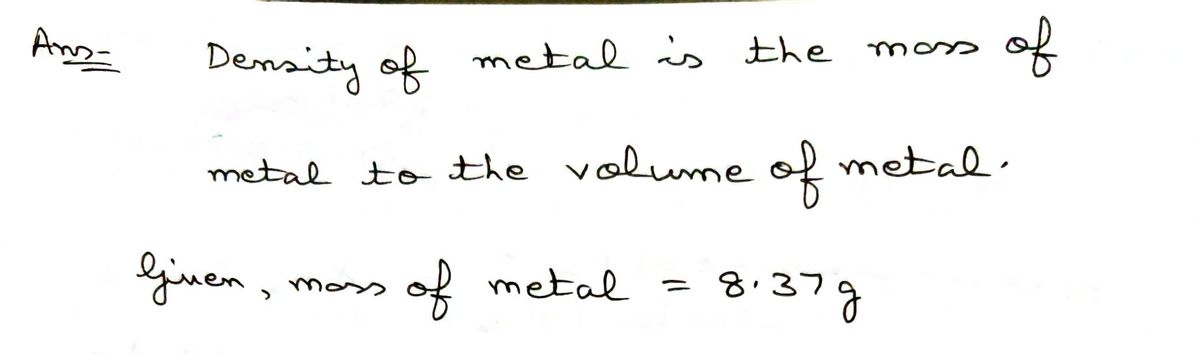 Ans- Density of metal is the mass of
metal to the volume of metal.
Given, mass of metal = 8.37g